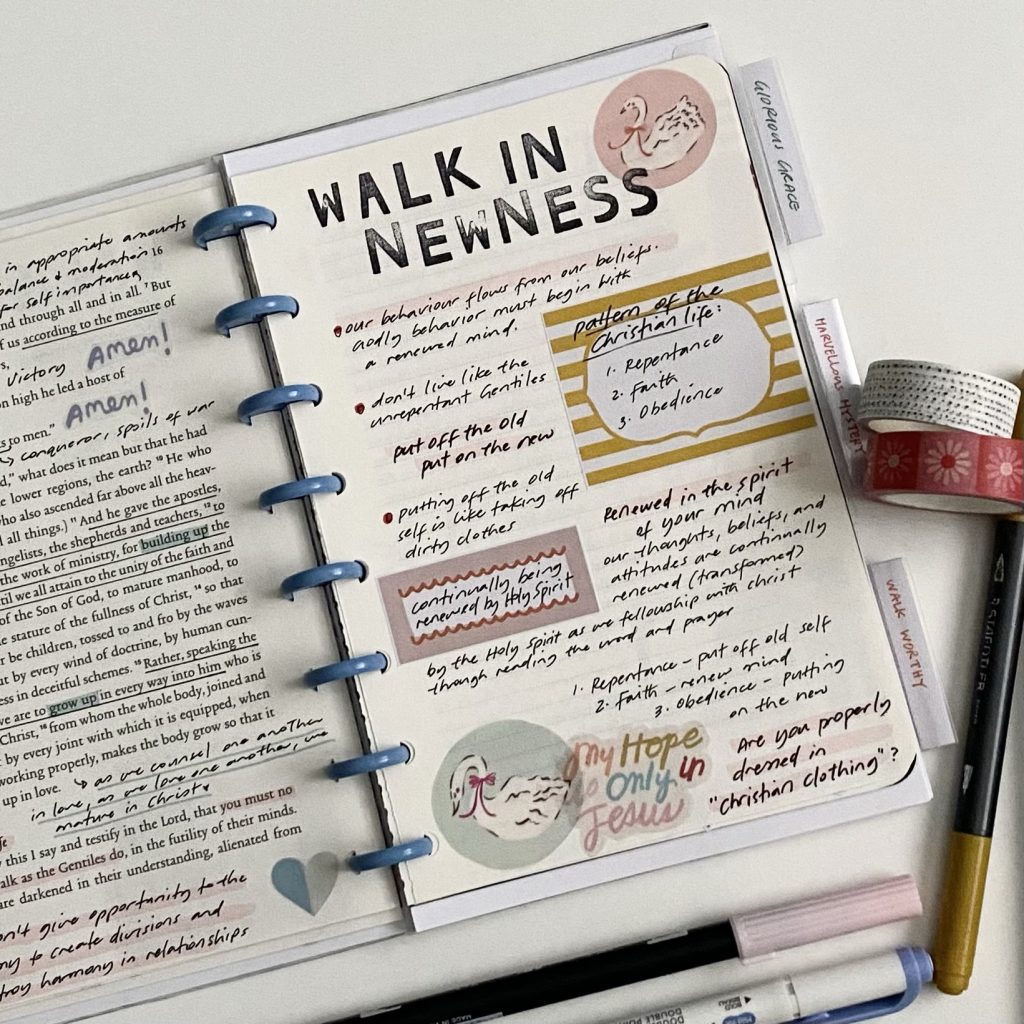 in appropriate amounts
balance & moderation 16
for self importance
nd through all and in all. ⁷ But
of us according to the measure of
victory Amen!
on high he led a host of
Amen!
ts to men."
→ conqueror, spoils of war
," what does it mean but that he had
e lower regions, the earth? ¹⁰ He who
who also ascended far above all the heav-
all things.) ¹¹ And he gave the apostles,
ngelists, the shepherds and teachers, ¹² to
the work of ministry, for building up the
til we all attain to the unity of the faith and
of the Son of God, to mature manhood, to
e stature of the fullness of Christ, ¹⁴ so that
r be children, tossed to and fro by the waves
ut by every wind of doctrine, by human cun-
ess in deceitful schemes. ¹⁵ Rather, speaking the
we are to grow up in every way into him who is
Christ, ¹⁶ from whom the whole body, joined and
t by every joint with which it is equipped, when
working properly, makes the body grow so that it
up in love.
→ as we counsel one another
in love, as we love one another, we
mature in Christ
y this I say and testify in the Lord, that you must no
alk as the Gentiles do, in the futility of their minds.
are darkened in their understanding, alienated from
on't give opportunity to the
my to create divisions and
troy harmony in relationships
WALK IN
NEWNESS
our behaviour flows from our beliefs.
Godly behavior must begin with
a renewed mind.
pattern of the
Christian life:
1. Repentance
2. Faith
3. Obedience
• don't live like the
unrepentant Gentiles
put off the old
put on the new
• putting off the old
self is like taking off
dirty clothes
continually being
renewed by Holy Spirit
renewed in the spirit
of your mind
our thoughts, beliefs, and
attitudes are continually
renewed (transformed)
by the Holy Spirit as we fellowship with christ
though reading the word and prayer
1. Repentance - put off old self
2. Faith - renew mind
3. Obedience - putting
on the new
My Hope
is Only in
Jesus
Are you properly
dressed in
"christian clothing"?
GLORIOUS GRACE
MARVELLOUS MYSTERY
WALK WORTHY
STAEDTLER